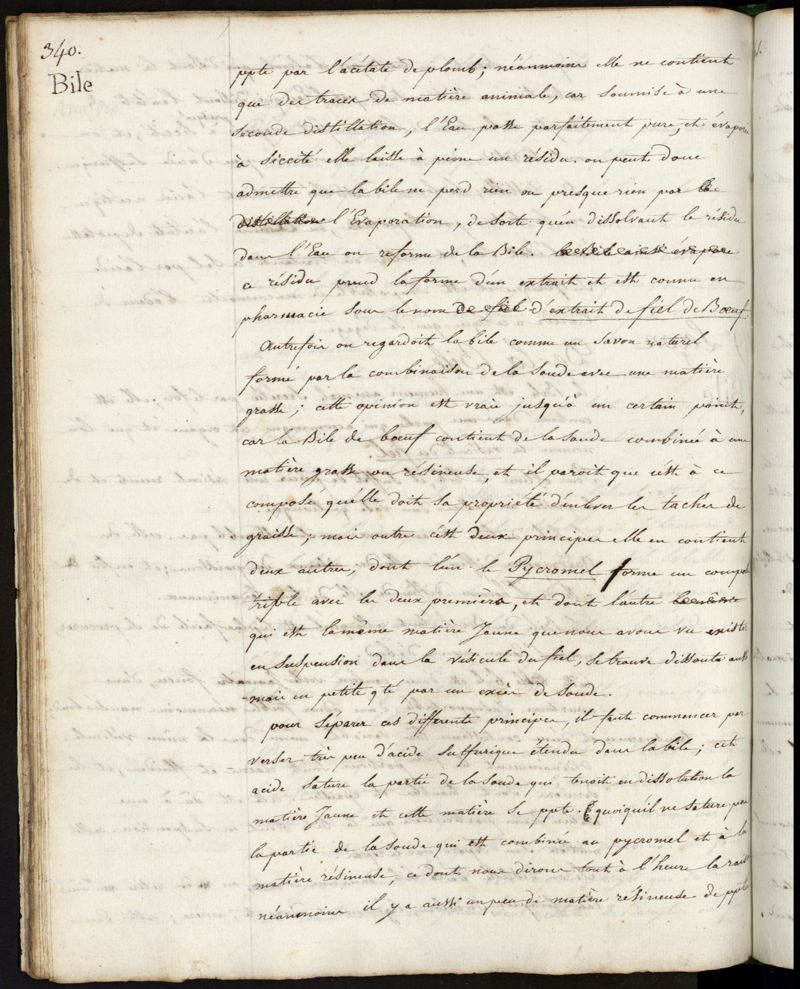 340.
Bile
ppte par l'acétate de plomb; néanmoins elle ne contient
que des traces de matière animale, car soumise à une
seconde distillation, l'Eau passe parfaitement pure, et évaporée
à siccité elle laisse à peine un résidu. on peut donc
admettre que la bile ne perd rien ou presque rien par la
distillation l'Evaporation, de sorte qu'en dissolvant le résidu
dans l'Eau on reforme de la Bile. la Bile ainsi évaporée
ce résidu prend la forme d'un extrait et est connu en
pharmacie sous le nom de fiel d'extrait de fiel de Bœuf.
Autrefois on regardoit la bile comme un savon naturel
formé par la combinaison de la soude avec une matière
grasse; cette opinion est vraie jusqu'à un certain point,
car la Bile de bœuf contient de la soude combinée à une
matière grasse ou résineuse, et il paroit que c'est à ce
composé qu'elle doit sa propriété d'enlever les taches de
graisse; mais outre ces deux principes elle en contient
deux autres; dont l'un le Pycromel forme un composé
triple avec les deux premiers, et dont l'autre
qui est la même matière Jaune que nous avons vu exister
en suspension dans la vésicule du fiel, se trouve dissoute aussi
mais en petite qté par un excès de soude.
pour séparer ces différents principes, il faut commencer par
verser très peu d'acide sulfurique étendu dans la bile; cet
acide sature la partie de la soude qui tenoit en dissolution la
matière Jaune et cette matière se ppte. quoiqu'il ne sature pas
la partie de la soude qui est combinée au pycromel et à la
matière résineuse, ce dont nous dirons tout à l'heure la raison
néanmoins il y a aussi un peu de matière résineuse de ppté